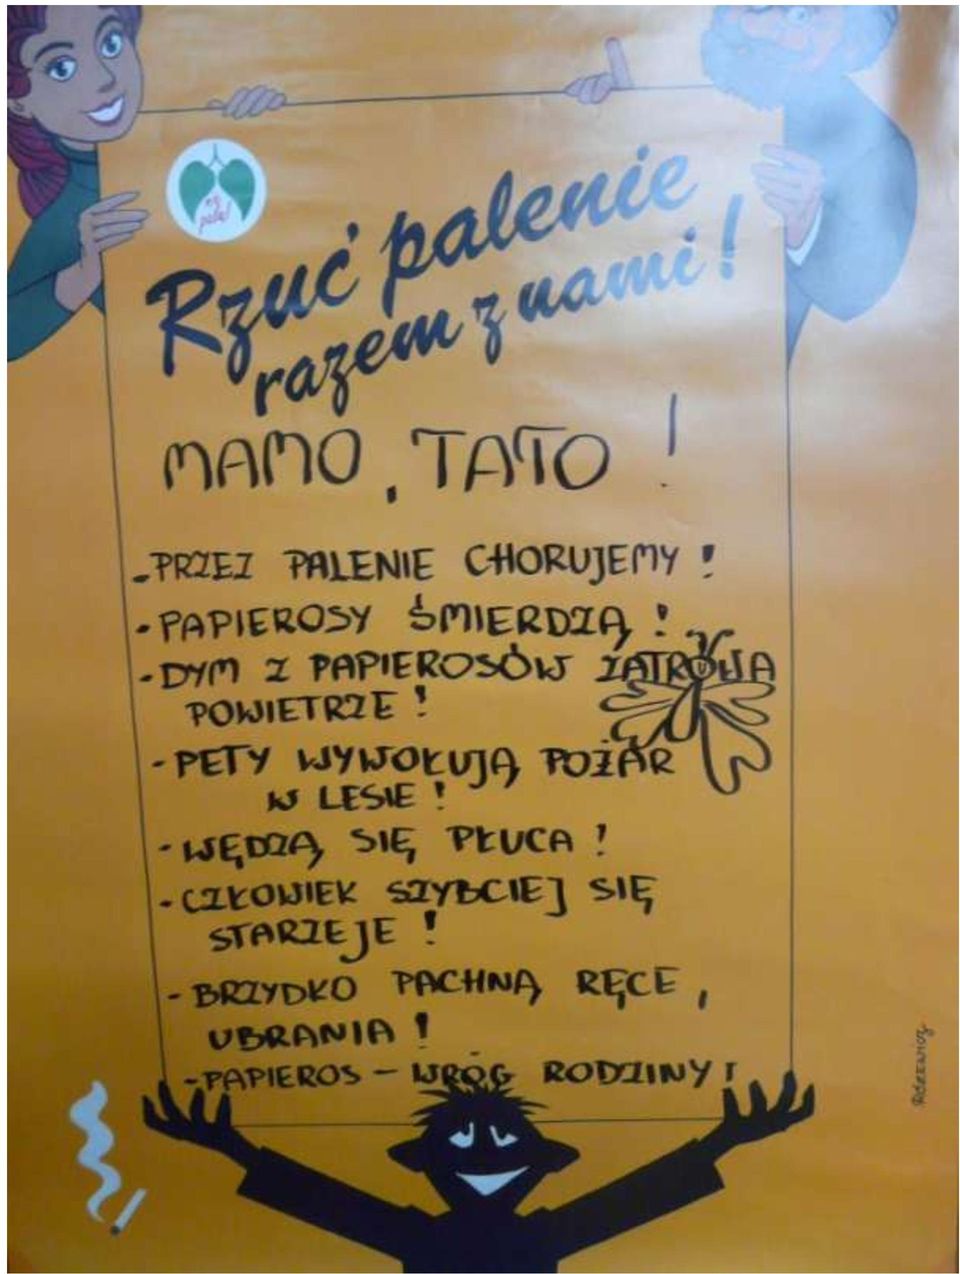 nie palę!
Rzuć palenie
razem z nami!
MAMO, TATO!
-PRZEZ PALENIE CHORUJEMY!
-PAPIEROSY ŚMIERDZĄ!
-DYM Z PAPIEROSÓW ZATRUWA
POWIETRZE!
-PETY WYWOŁUJĄ POŻAR
W LESIE!
-WĘDZĄ SIĘ PŁUCA!
-CZŁOWIEK SZYBCIEJ SIĘ
STARZEJE!
-BRZYDKO PACHNĄ RĘCE,
UBRANIA!
-PAPIEROS - WRÓG RODZINY!